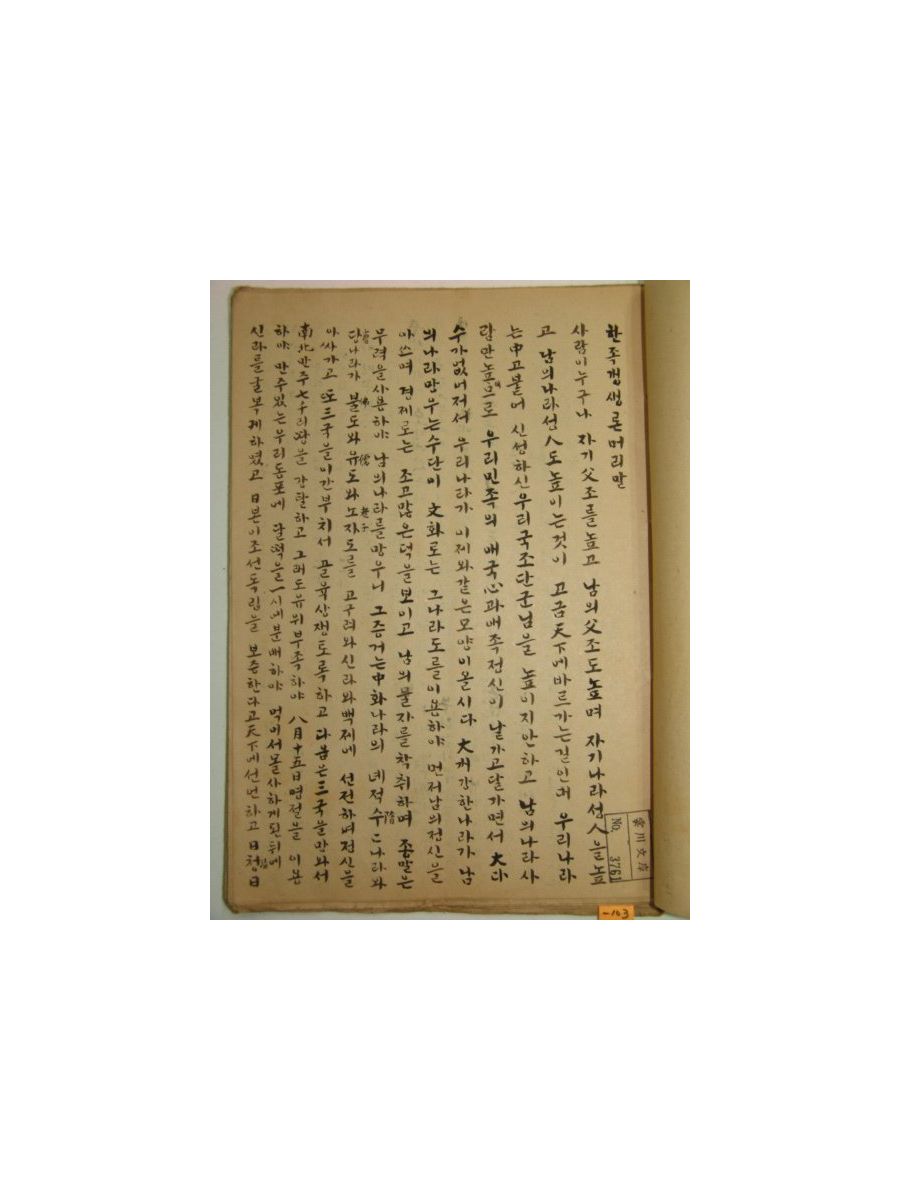 한족갱생론머리말
사람이누구나 자기父조를높고 남의父조도높며 자기나라선人을높
고 남의나라선人도높이는것이 고금天下에바르가는길인며 우리나라
는中고붙어 신성하신우리국조단군님을 높이지안하고 남의나라사
람만높으로 우리민족의 배국心과배족정신이 날가고달가면서 大다
수가없너저서 우리나라가 이제와같은모양이올시다 大개강한나라가남
의나라망우는수단이 文화로는 그나라도를이욘하야 먼저남의정신을
아쓰며 경제로는 조고많은덕을보이고 남의물자를착취하며 종말은
무력을사용하야 남의나라를망우니 그증거는中화나라의 녜적수隋ㄷ나라와
당나라가 불佛도와유儒도와노자老子도를 고구려와신라와백제에 선전하며정신을
아싸가고 또三국을이간부치서 골육상쟁토록하고 다음은三국을만와서
南北만주七千리땅을 강탈하고 그래도유위부족하야 八月十五日명절을 이욘
하야 만주있는우리동포에 달떡을一시에분배하야 먹이서몰사하게된뒤에
신라를굴복게하였고 日본이조선독립을 보증한다고天下에선언하고 日청日
No. 3761
-103